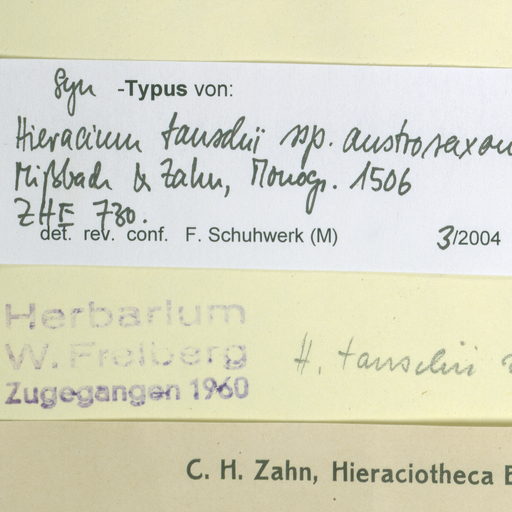 Syn -Typus von:
Hieracium tauschii ssp. austrosaxon
Mißbach & Zahn, Monogr. 1506
ZHE 730.
det. rev. conf. F. Schuhwerk (M) 3/2004
Herbarium
W. Freiberg
Zugegangen 1960
H. tauschii
C. H. Zahn, Hieraciotheca E